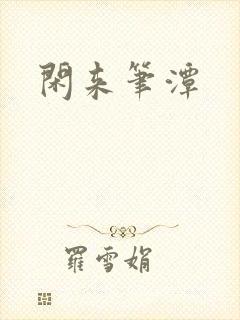 閑来筆潭
羅雪娟